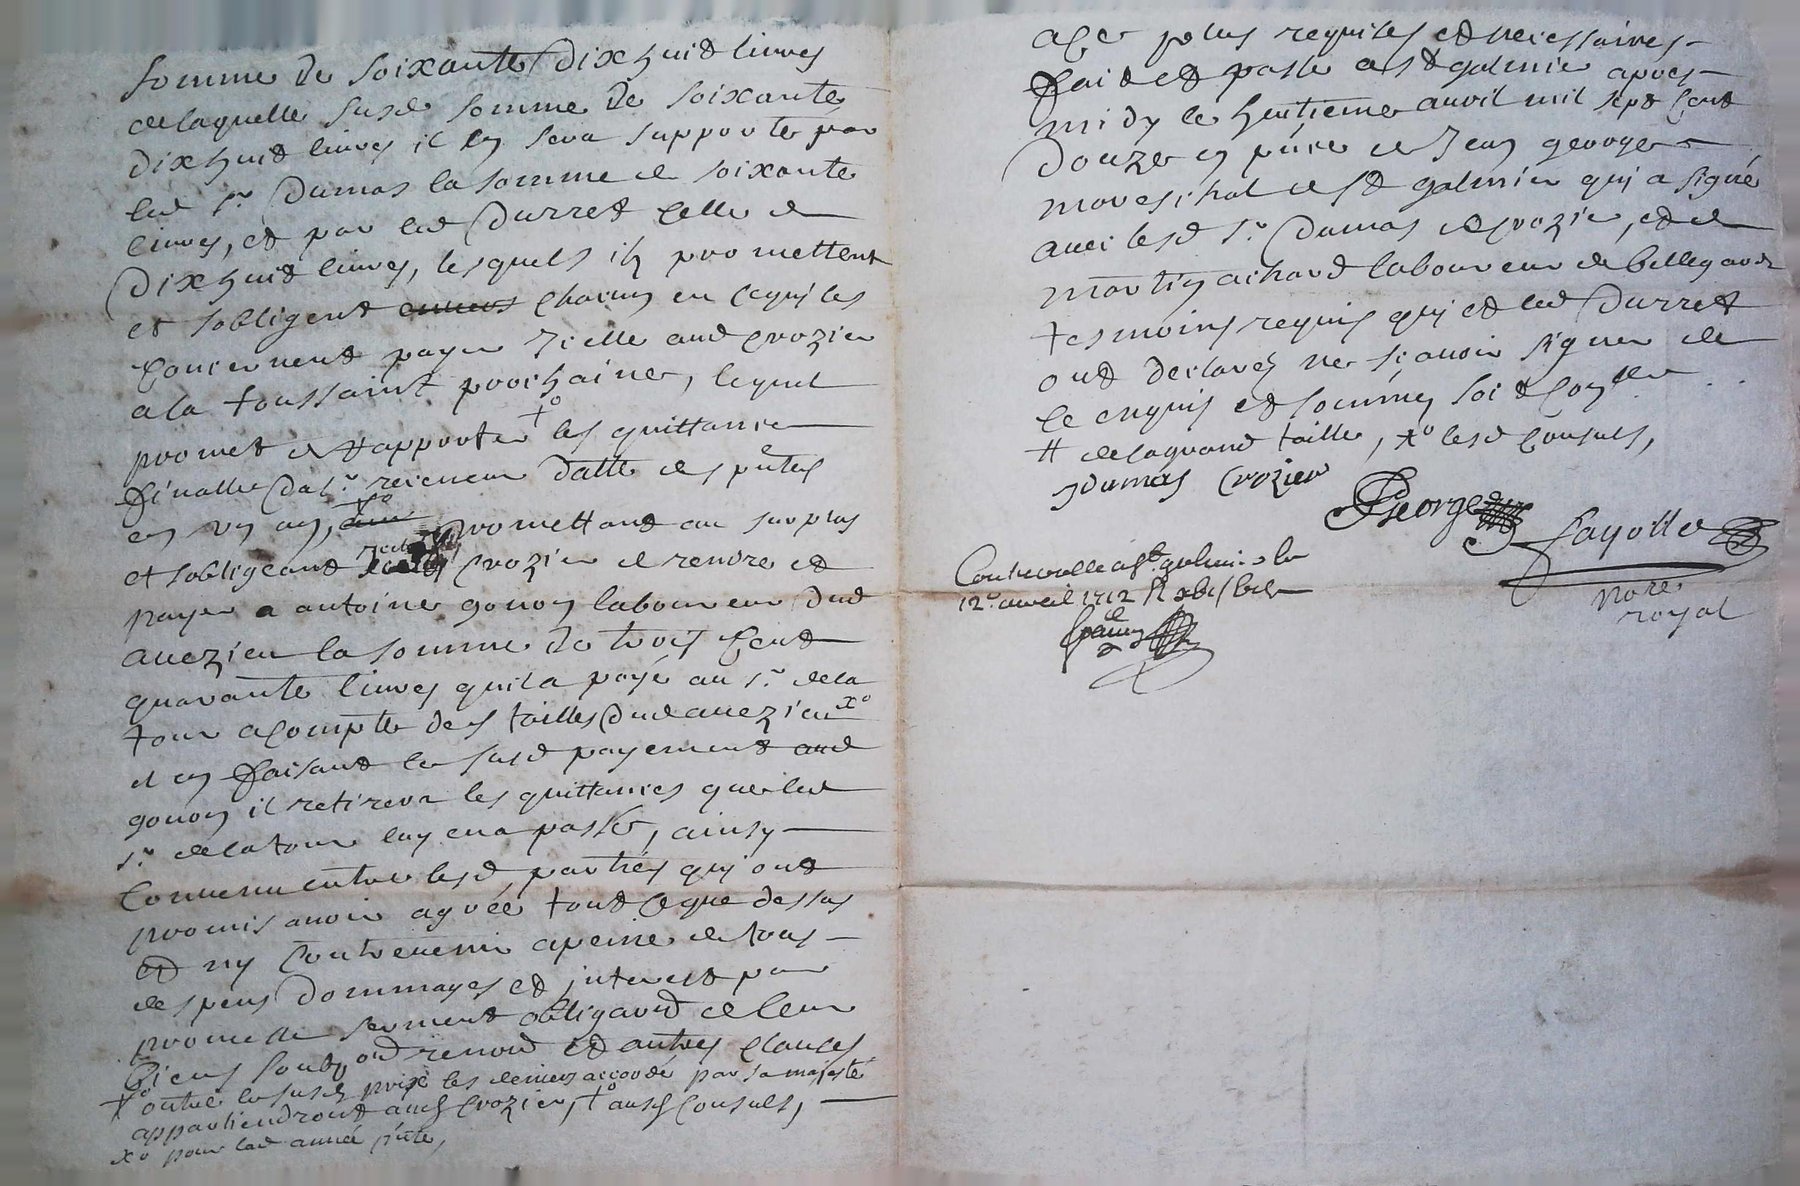 somme de soixante dix huit livres
de laquelle susd somme de soixante
dix huit livres il en sera supporté par
led sr. Dumas la somme de soixante
livres, et par led Durret celle de
dix huit livres, lesquels ils promettent
et sobligent chacun en ce qui les
concernent payer icelle aud Crozier
a la toussaint prochaine, lequel
promet de # rapporter +o les quittance
finalle du sr. receveur datte des pntes
en un an, promettant au surplus
et sobligeant Crozier de rendre et
payer a antoine gonon laboureur dud
auezieu la somme de trois cent
quarante livres quil a payé au sr. de la
tour a compte des tailles dud auezieu xo
et en faisant le susd payement aud
gonon il retirera les quittances que led
sr. de la tour luy en a passé, ainsy
convenu entre lesd parties qui ont
promis avoir agréé tout ce que dessus
et ny contrevenir a peine de tous
despens dommages et interest par
promesse serment obligaond de leur
biens soub, ond renond et autres clauses
outre le susd prix les deniers accordé par sa majesté
appartiendront aud Crozier, +o ausd Consuls,
xo pour lad année pnte,
a ce plus requises et necessaires
fait et passé a st galmier apres
midy le huitieme avril mil sept cent
douze en pnce de Jean george
mareschal de st galmier qui a signé
avec lesd sr. Dumas et Crozier, et de
martin achard laboureur de bellegarde
tesmoins requis qui et led Durret
ont declarez ne scavoir signer de
ce enquis et sommez soit conller
# de la grand taille, xo lesd Consuls,
Dumas Crozier
George
fayolle
nore
royal
Controllé a st galmier le
12e avril 1712